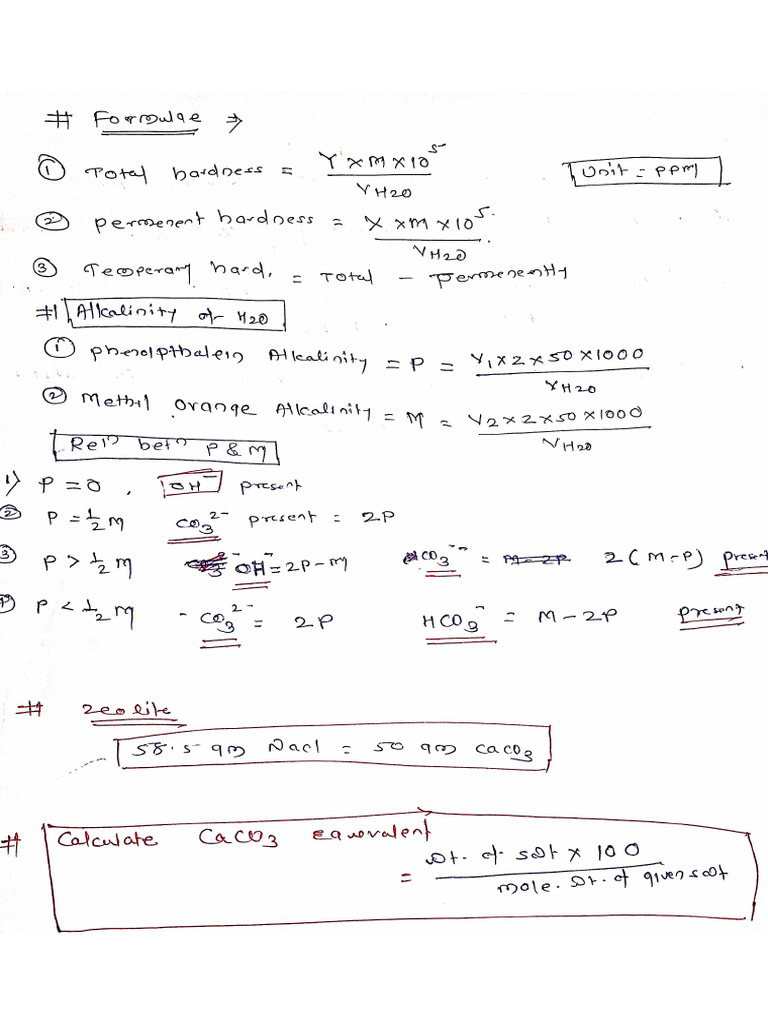 # Formulae ⇒
① Total hardness = Y × M × 10⁵ / V H2O    Unit = PPM
② permenent hardness = X × M × 10⁵ / V H2O
③ Temperary hard. = Total – permenently
# Alkalinity of H2O
① phenolpthalein Alkalinity = P = V₁ × Z × 50 × 1000 / V H2O
② Methyl orange Alkalinity = M = V2 × Z × 50 × 1000 / V H2O
Relⁿ betⁿ P & M
1) P = 0 , OH⁻ present
② P = 1/2 M    CO3²⁻ present = 2P
③ P > 1/2 M    OH⁻ = 2P – M    CO3⁻⁻ = 2 (M – P) present
④ P < 1/2 M    - CO3²⁻ = 2P    HCO3⁻ = M – 2P present
# Zeolite
58.5 gm Nacl = 50 gm caco3
# Calculate CaCO3 equavalent
= Wt. of salt × 100 / mole. wt. of given salt